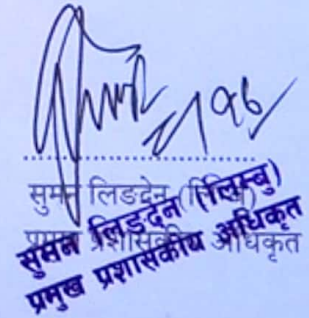 सुमन लिङदेन (लिम्बु)
प्रमुख प्रशासकीय अधिकृत
सुमन लिङदेन (लिम्बु)
प्रमुख प्रशासकीय अधिकृत